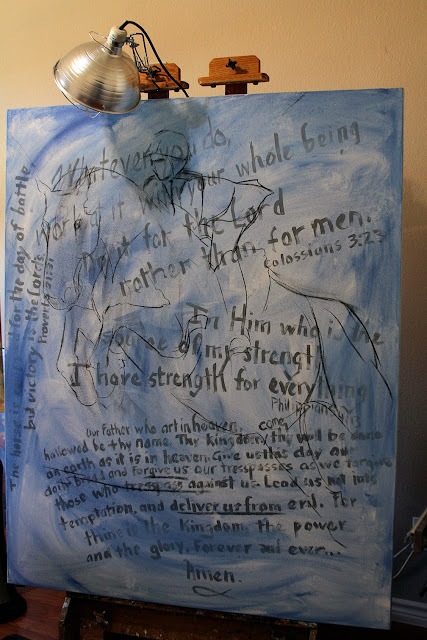 Whatever you do,
work at it with your whole being
Do it for the Lord
rather than for men.
Colossians 3:23
The horse is for the day of battle,
but victory is the Lord's
Proverbs 21:31
In Him who is the
source of my strengt
I have strength for everything
Philippians
Our Father who art in heaven, come,
hallowed be thy name. Thy kingdom thy will be done
on earth as it is in heaven. Give us this day our
daily bread and forgive us our tresspasses as we forgive
those who tresspass against us. Lead us not into
temptation, and deliver us from evil. For
thine is the Kingdom, the power
and the glory. Forever and ever...
Amen.